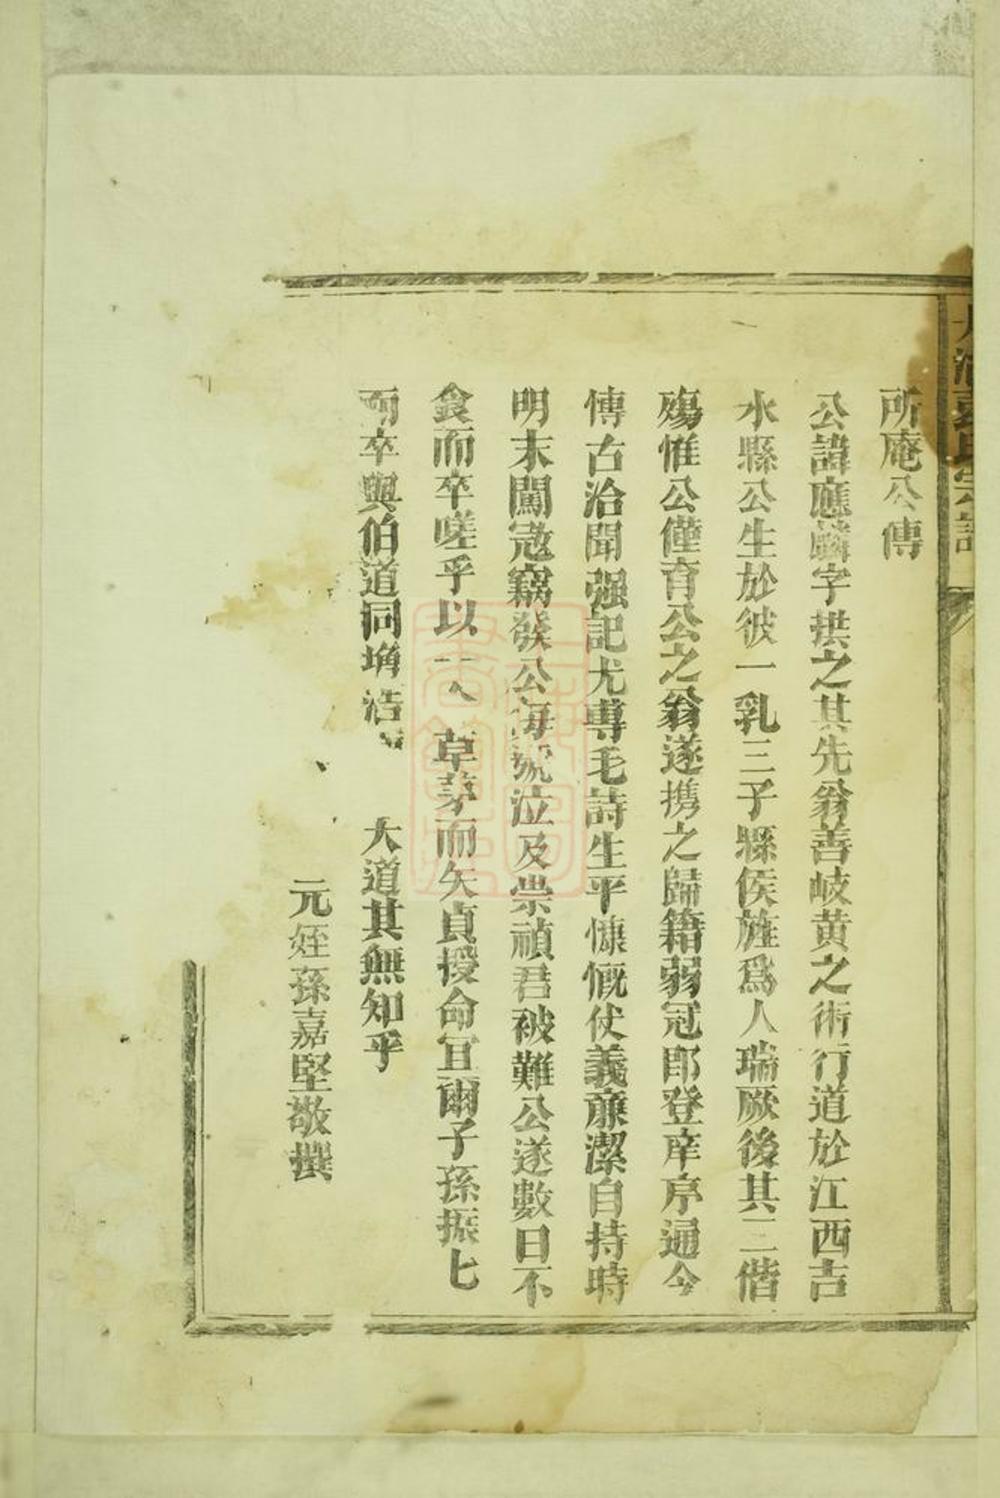 所庵公傳
公諱應麟字拱之其先翁善岐黄之術行道於江西吉
水縣公生於彼一乳三子縣侯旌爲人瑞厥後其二偕
殤惟公僅育公之翁遂携之歸籍弱冠即登庠序通今
博古洽聞强記尤專毛詩生平慷慨仗義廉潔自持時
明末闖寇竊發公每號泣及崇禎君被難公遂數日不
食而卒嗟乎以一人草茅而矢貞授命宜爾子孫振
而卒與伯道同 浩 大道其無知乎
元姪孫嘉堅敬撰